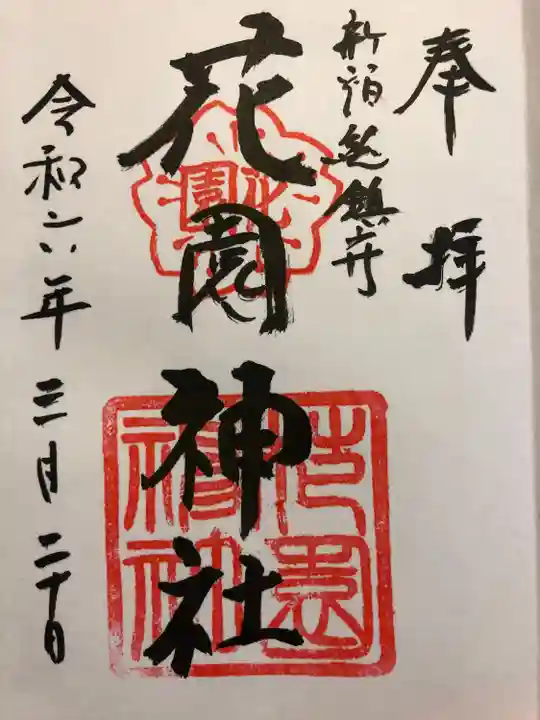 奉拝
新宿総鎮守
花園神社
令和六年三月二十日
花園
花園神社